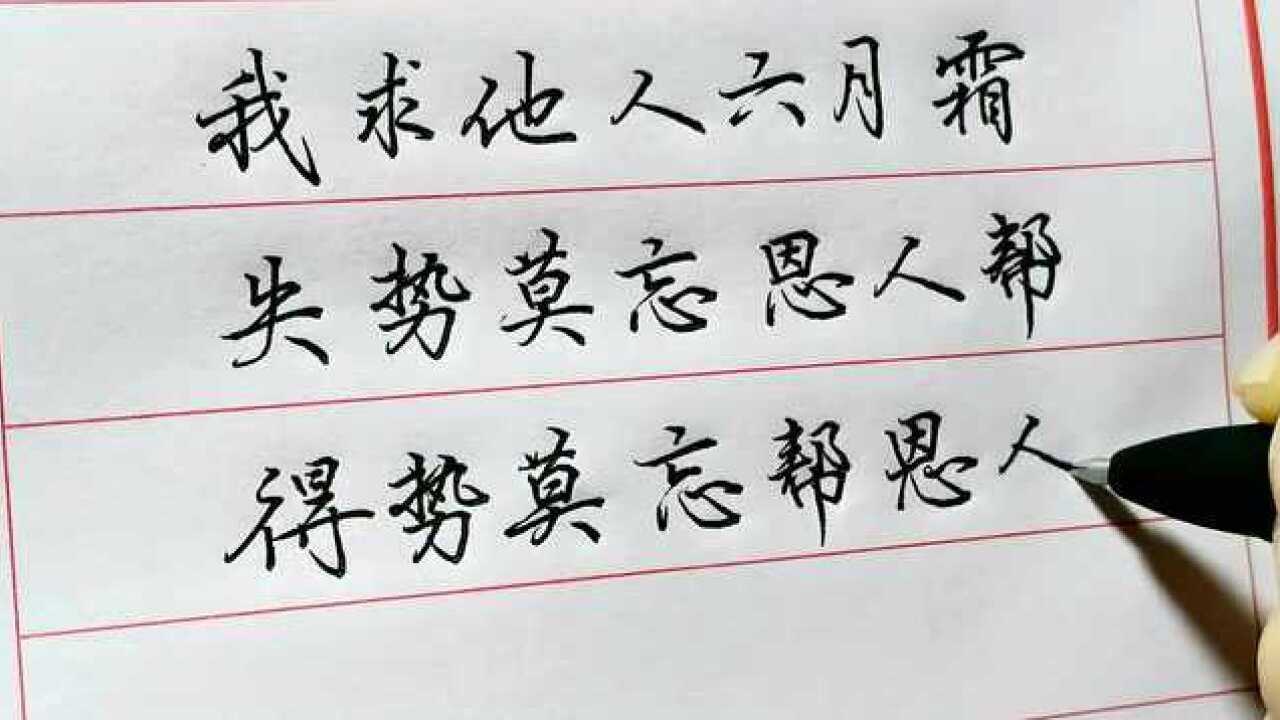 我求他人六月霜
失势莫忘恩人帮
得势莫忘帮恩人